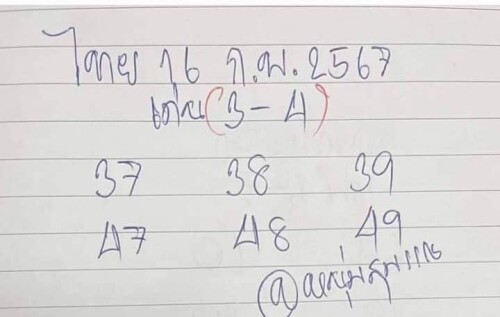 ไทย 16 ก.พ. 2567
เด่น (3-4)
37 38 39
47 48 49